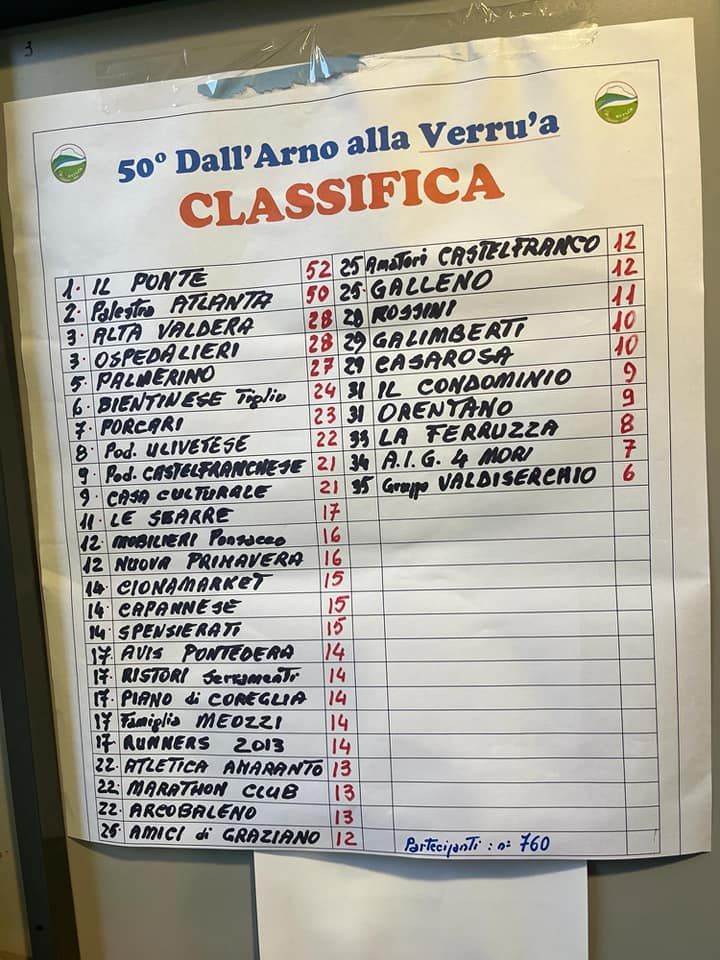 50° Dall'Arno alla Verru'a
CLASSIFICA
1. IL PONTE 52
2. Palestra ATLANTA 50
3. ALTA VALDERA 28
3. OSPEDALIERI 28
5. PALMERINO 27
6. BIENTINESE Tiglio 24
7. PORCARI 23
8. Pod. ULIVETESE 22
9. Pod. CASTELFRANCHESE 21
9. CASA CULTURALE 21
11. LE SBARRE 17
12. MOBILIERI Ponsacco 16
12 NUOVA PRIMAVERA 16
14. CIONAMARKET 15
14. CAPANNESE 15
14. SPENSIERATI 15
17. AVIS PONTEDERA 14
17. RISTORI Serramenti 14
17. PIANO di COREGLIA 14
17 Famiglia MEOZZI 14
17 RUNNERS 2013 14
22. ATLETICA AMARANTO 13
22. MARATHON CLUB 13
22. ARCOBALENO 13
26. AMICI di GRAZIANO 12
25 Amatori CASTELFRANCO 12
25 GALLENO 12
28 ROSSINI 11
29 GALIMBERTI 10
29 CASAROSA 10
31 IL CONDOMINIO 9
31 ORENTANO 9
33 LA FERRUZZA 8
34 A.I.G. 4 MORI 7
35 Gruppo VALDISERCHIO 6
Partecipanti : n° 760